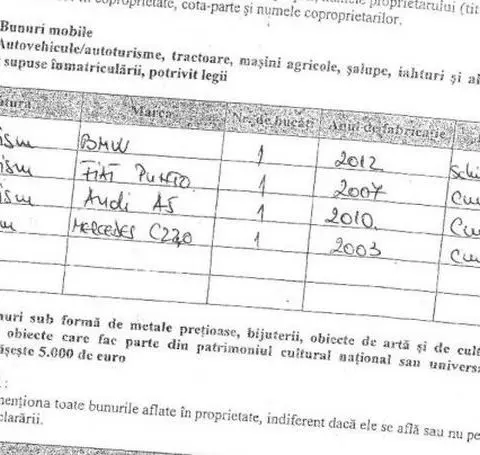 în coproprietate, cota-parte şi numele coproprietarilor.
Bunuri mobile
Autovehicule/autoturisme, tractoare, maşini agricole, şalupe, iahturi şi al
supuse înmatriculării, potrivit legii
Marca Nr. de bucăţi Anul de fabricaţie
ism BMW 1 2012 Schi
ism FIAT PUNTO 1 2007 Cu
ism Audi A5 1 2010 Cu
MERCEDES C220 1 2003 Cu
nuri sub formă de metale preţioase, bijuterii, obiecte de artă şi de cult
obiecte care fac parte din patrimoniul cultural naţional sau universa
ăşeşte 5.000 de euro
menţiona toate bunurile aflate în proprietate, indiferent dacă ele se află sau nu pe
clarării.